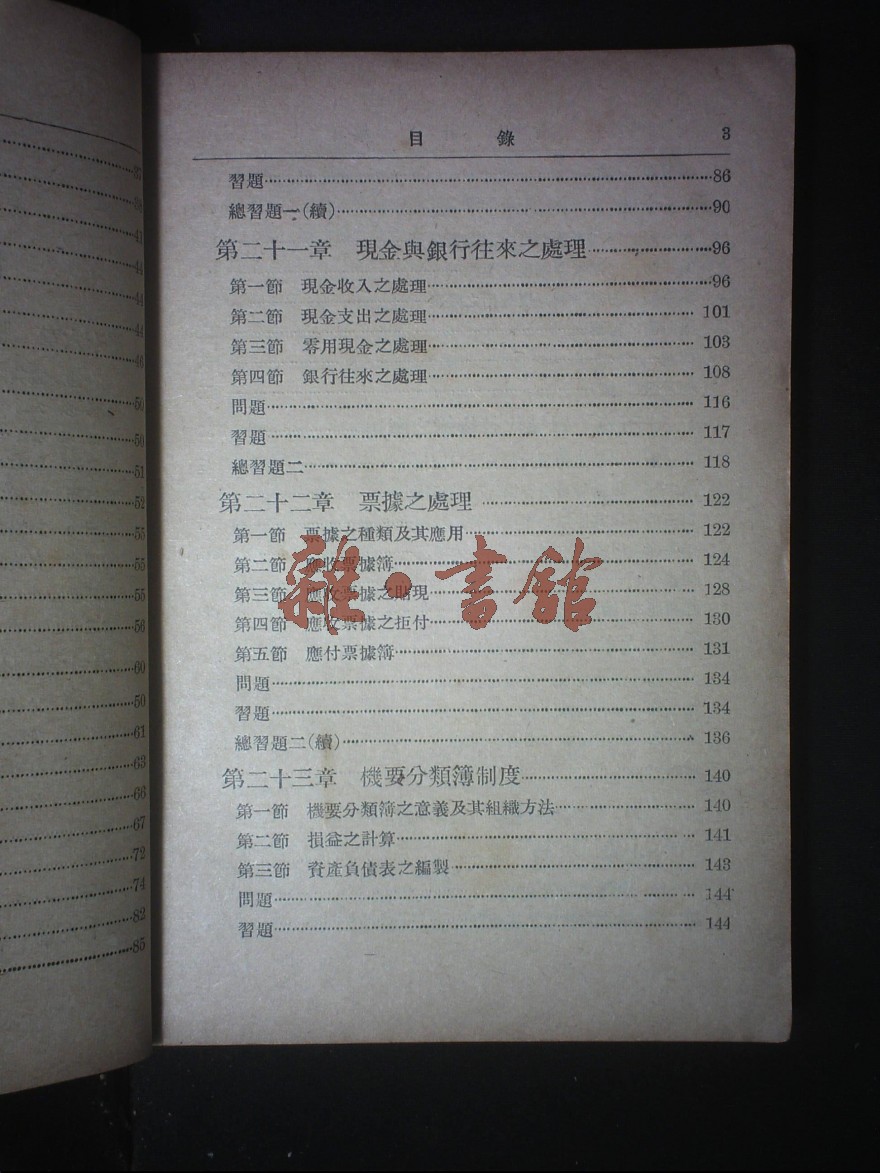 目錄 3
習題 86
總習題一(續) 90
第二十一章 現金與銀行往來之處理 96
第一節 現金收入之處理 96
第二節 現金支出之處理 101
第三節 零用現金之處理 103
第四節 銀行往來之處理 108
問題 116
習題 117
總習題二 118
第二十二章 票據之處理 122
第一節 票據之種類及其應用 122
第二節 應收票據簿 124
第三節 應收票據之貼現 128
第四節 應收票據之拒付 130
第五節 應付票據簿 131
問題 134
習題 134
總習題二(續) 136
第二十三章 機要分類簿制度 140
第一節 機要分類簿之意義及其組織方法 140
第二節 損益之計算 141
第三節 資產負債表之編製 143
問題 144
習題 144
雜·書館
37
39
41
44
44
44
46
50
50
51
52
55
55
55
56
60
50
61
63
66
67
72
74
82
85